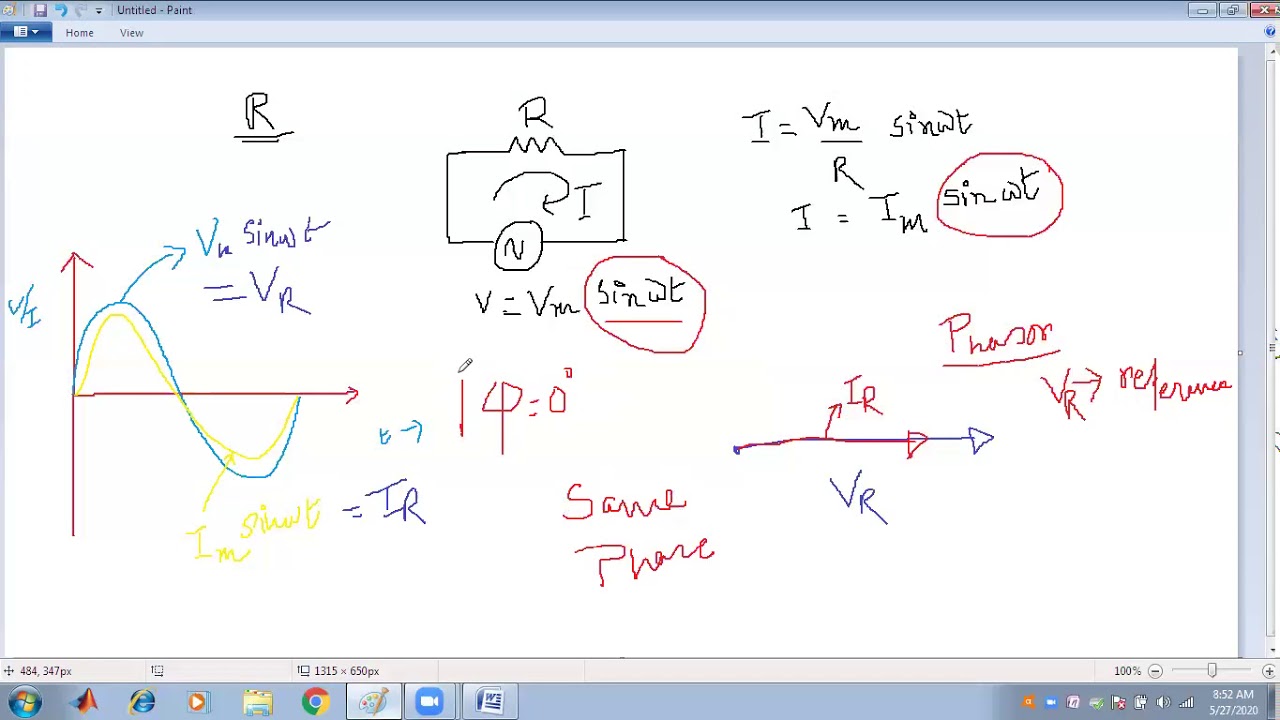 Untitled - Paint
Home View
R
R
I
V = Vm sinωt
I = Vm/R sinωt
I = Im sinωt
Vm sinωt
= VR
V/I
t →
Im sinωt = IR
φ = 0°
Same
Phase
Phasor
VR → reference
IR
VR
484, 347px
1315 × 650px
100%
8:52 AM
5/27/2020